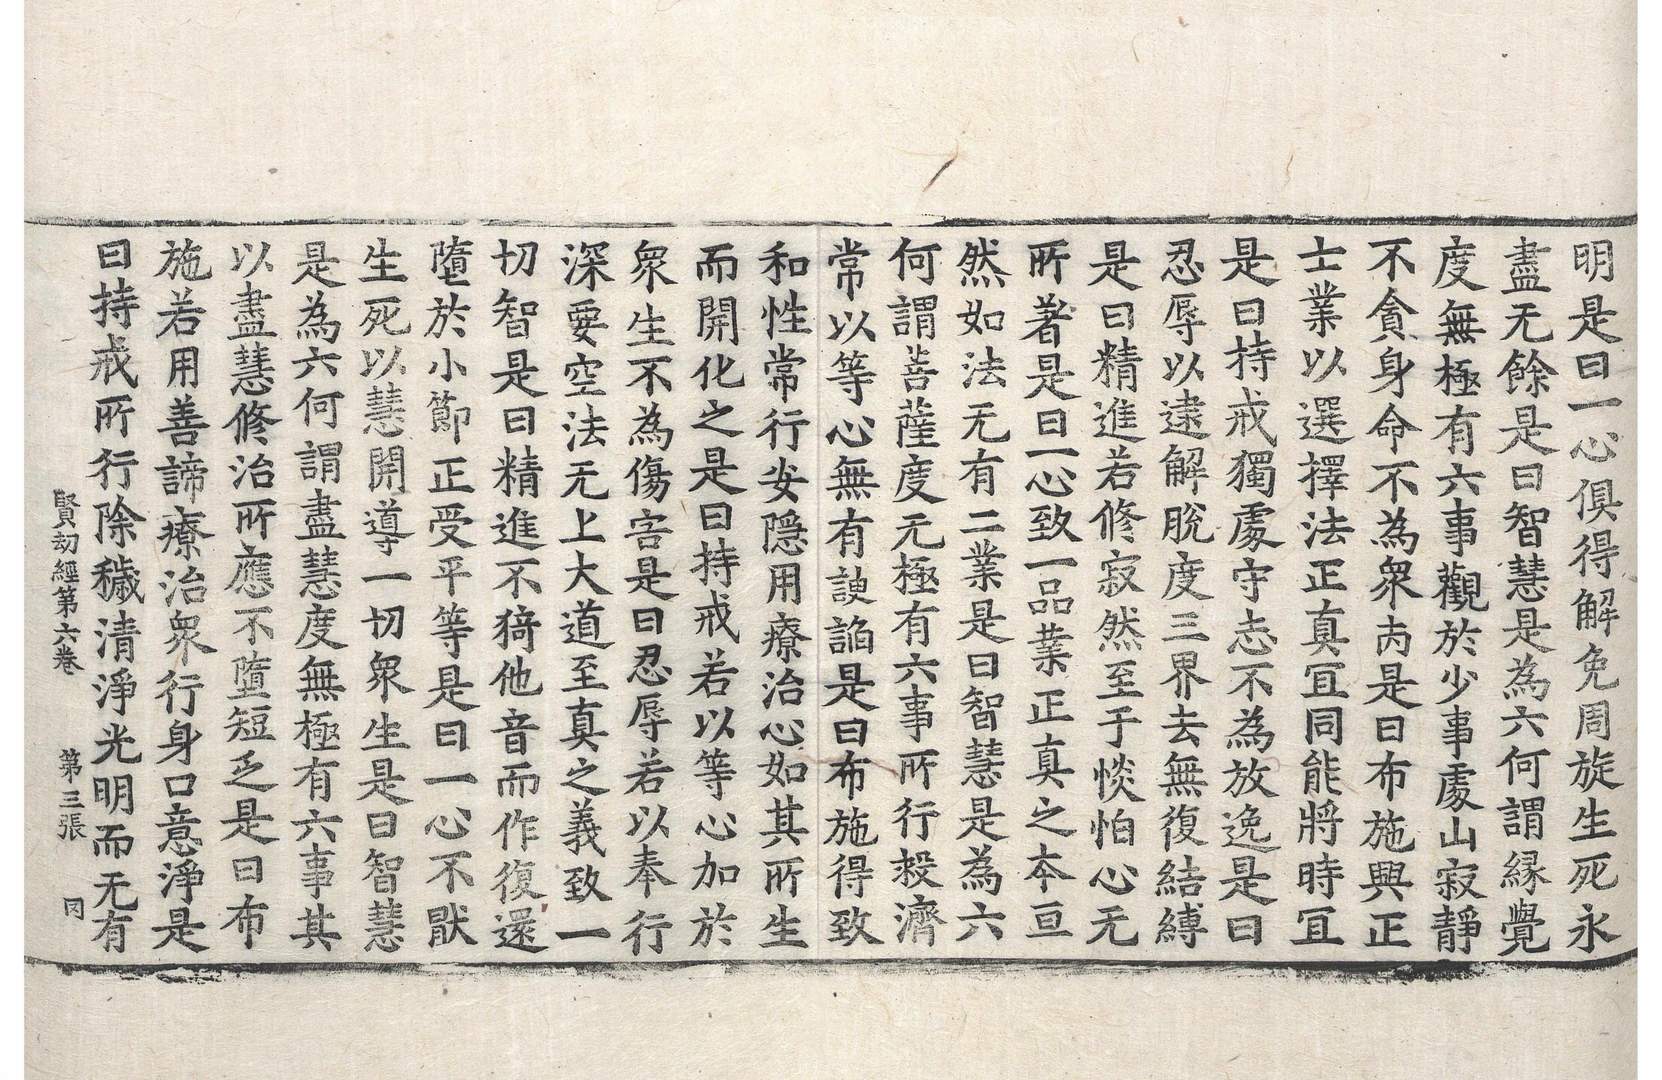 明是曰一心俱得解免周旋生死永
盡无餘是曰智慧是為六何謂緣覺
度無極有六事觀於少事處山寂靜
不貪身命不為衆丙是曰布施興正
士業以選擇法正真冝同能將時冝
是曰持戒獨處守志不為放逸是曰
忍辱以逮解脫度三界去無復結縛
是曰精進若修寂然至于惔怕心无
所著是曰一心致一品業正真之本亘
然如法无有二業是曰智慧是為六
何謂菩薩度无極有六事所行殺濟
常以等心無有諛諂是曰布施得致
和性常行安隱用療治心如其所生
而開化之是曰持戒若以等心加於
衆生不為傷害是曰忍辱若以奉行
深要空法无上大道至真之義致一
切智是曰精進不猗他音而作復還
墮於小節正受平等是曰一心不猒
生死以慧開導一切衆生是曰智慧
是為六何謂盡慧度無極有六事其
以盡慧修治所應不墮短乏是曰布
施若用善諦療治衆行身口意淨是
曰持戒所行除穢清淨光明而无有
賢劫經第六卷 第三張 冈